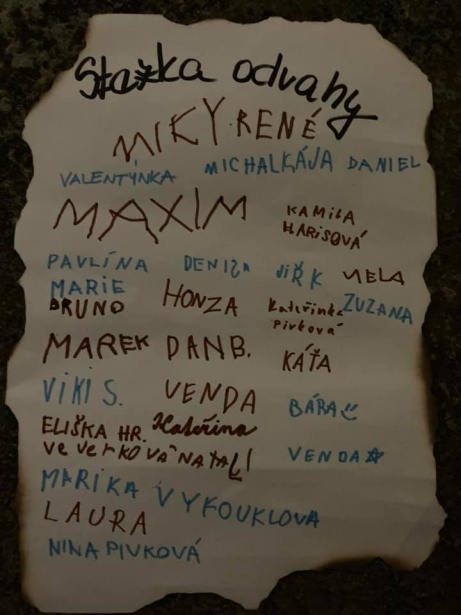 Stezka odvahy
MIKY RENÉ
VALENTÝNKA MICHAL KÁJA DANIEL
MAXIM KAMILA
HARISOVÁ
PAVLÍNA DENISA JIŘK MELA
MARIE
BRUNO HONZA Kateřinka ZUZANA
Pivková
MAREK DAN B. KÁŤA
VIKI S. VENDA BÁRA
ELIŠKA HR. Kateřina
VeVeRKOVÁ NATALI VENDA
MARIKA VYKOUKLOVA
LAURA
NINA PIVKOVÁ